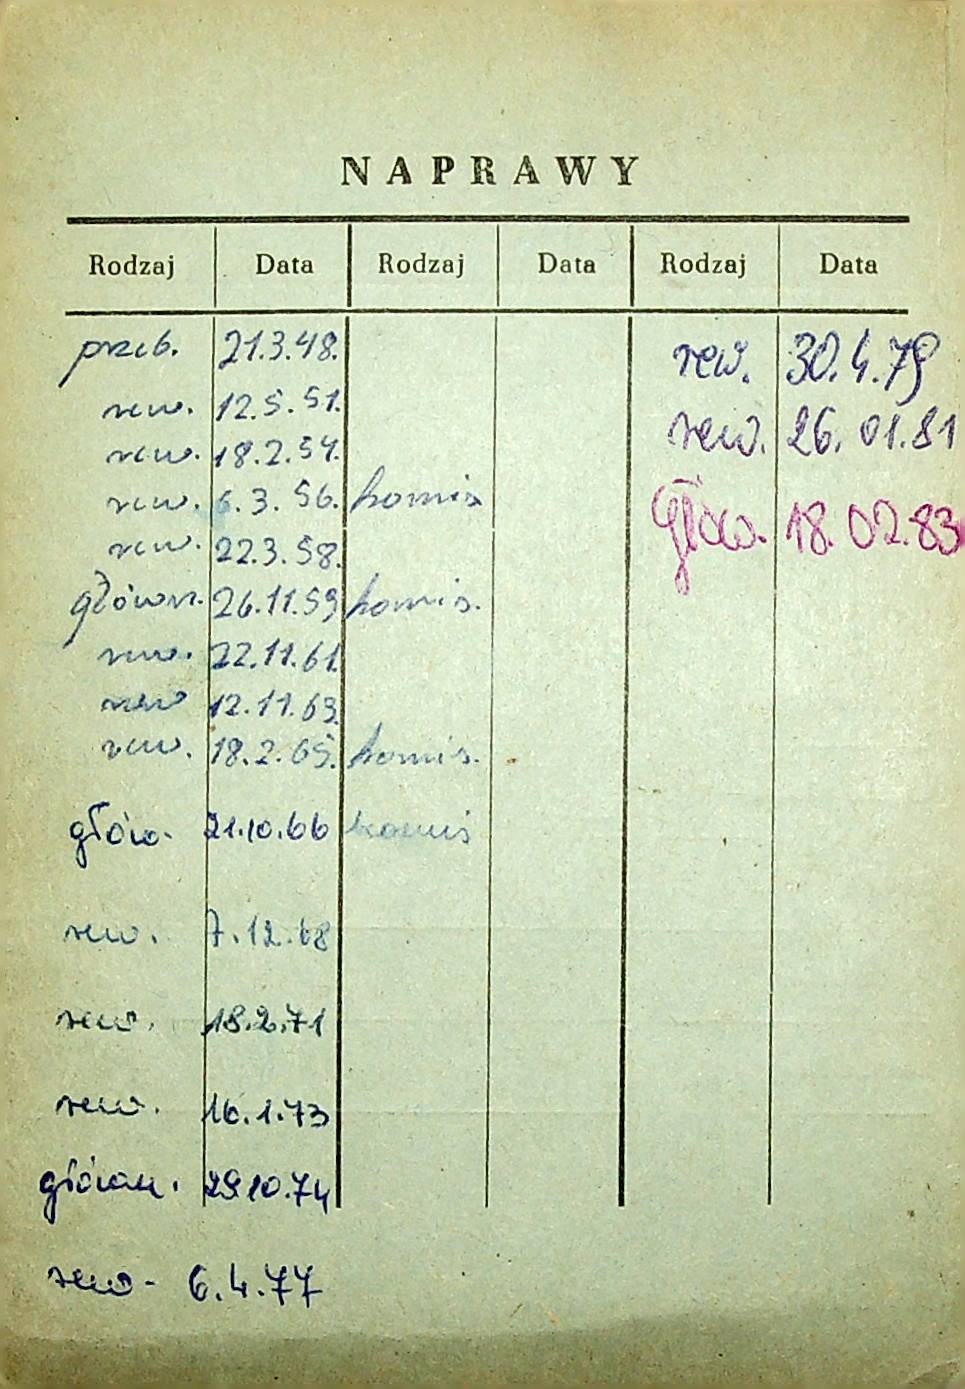 NAPRAWY
Rodzaj Data Rodzaj Data Rodzaj Data
przeb. 21.3.48. rew. 30.4.79
rew. 12.5.51. rew. 26.01.81
rew. 18.2.54.
rew. 6.3.56. komis głów. 18.02.83
rew. 22.3.58.
główn. 26.11.59 komis.
rew. 22.11.61.
rew 12.11.63.
rew. 18.2.65. komis.
głów. 21.10.66 komis
rew. 7.12.68
rew. 18.2.71
rew. 16.1.73
główn. 29.10.74
rew- 6.4.77